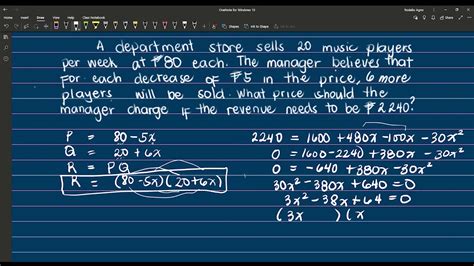 OneNote for Windows 10
Home Insert Draw View Class Notebook
A department store sells 20 music players
per week at ₱80 each. The manager believes that
for each decrease of ₱5 in the price, 6 more
players will be sold. What price should the
manager charge if the revenue needs to be ₱2240?
P = 80-5x
Q = 20+6x
R = PQ
R = (80-5x)(20+6x)
2240 = 1600 + 480x - 100x - 30x²
0 = 1600-2240 + 380x - 30x²
0 = -640 + 380x - 30x²
30x² - 380x + 640 = 0
3x² - 38x + 64 = 0
(3x )(x